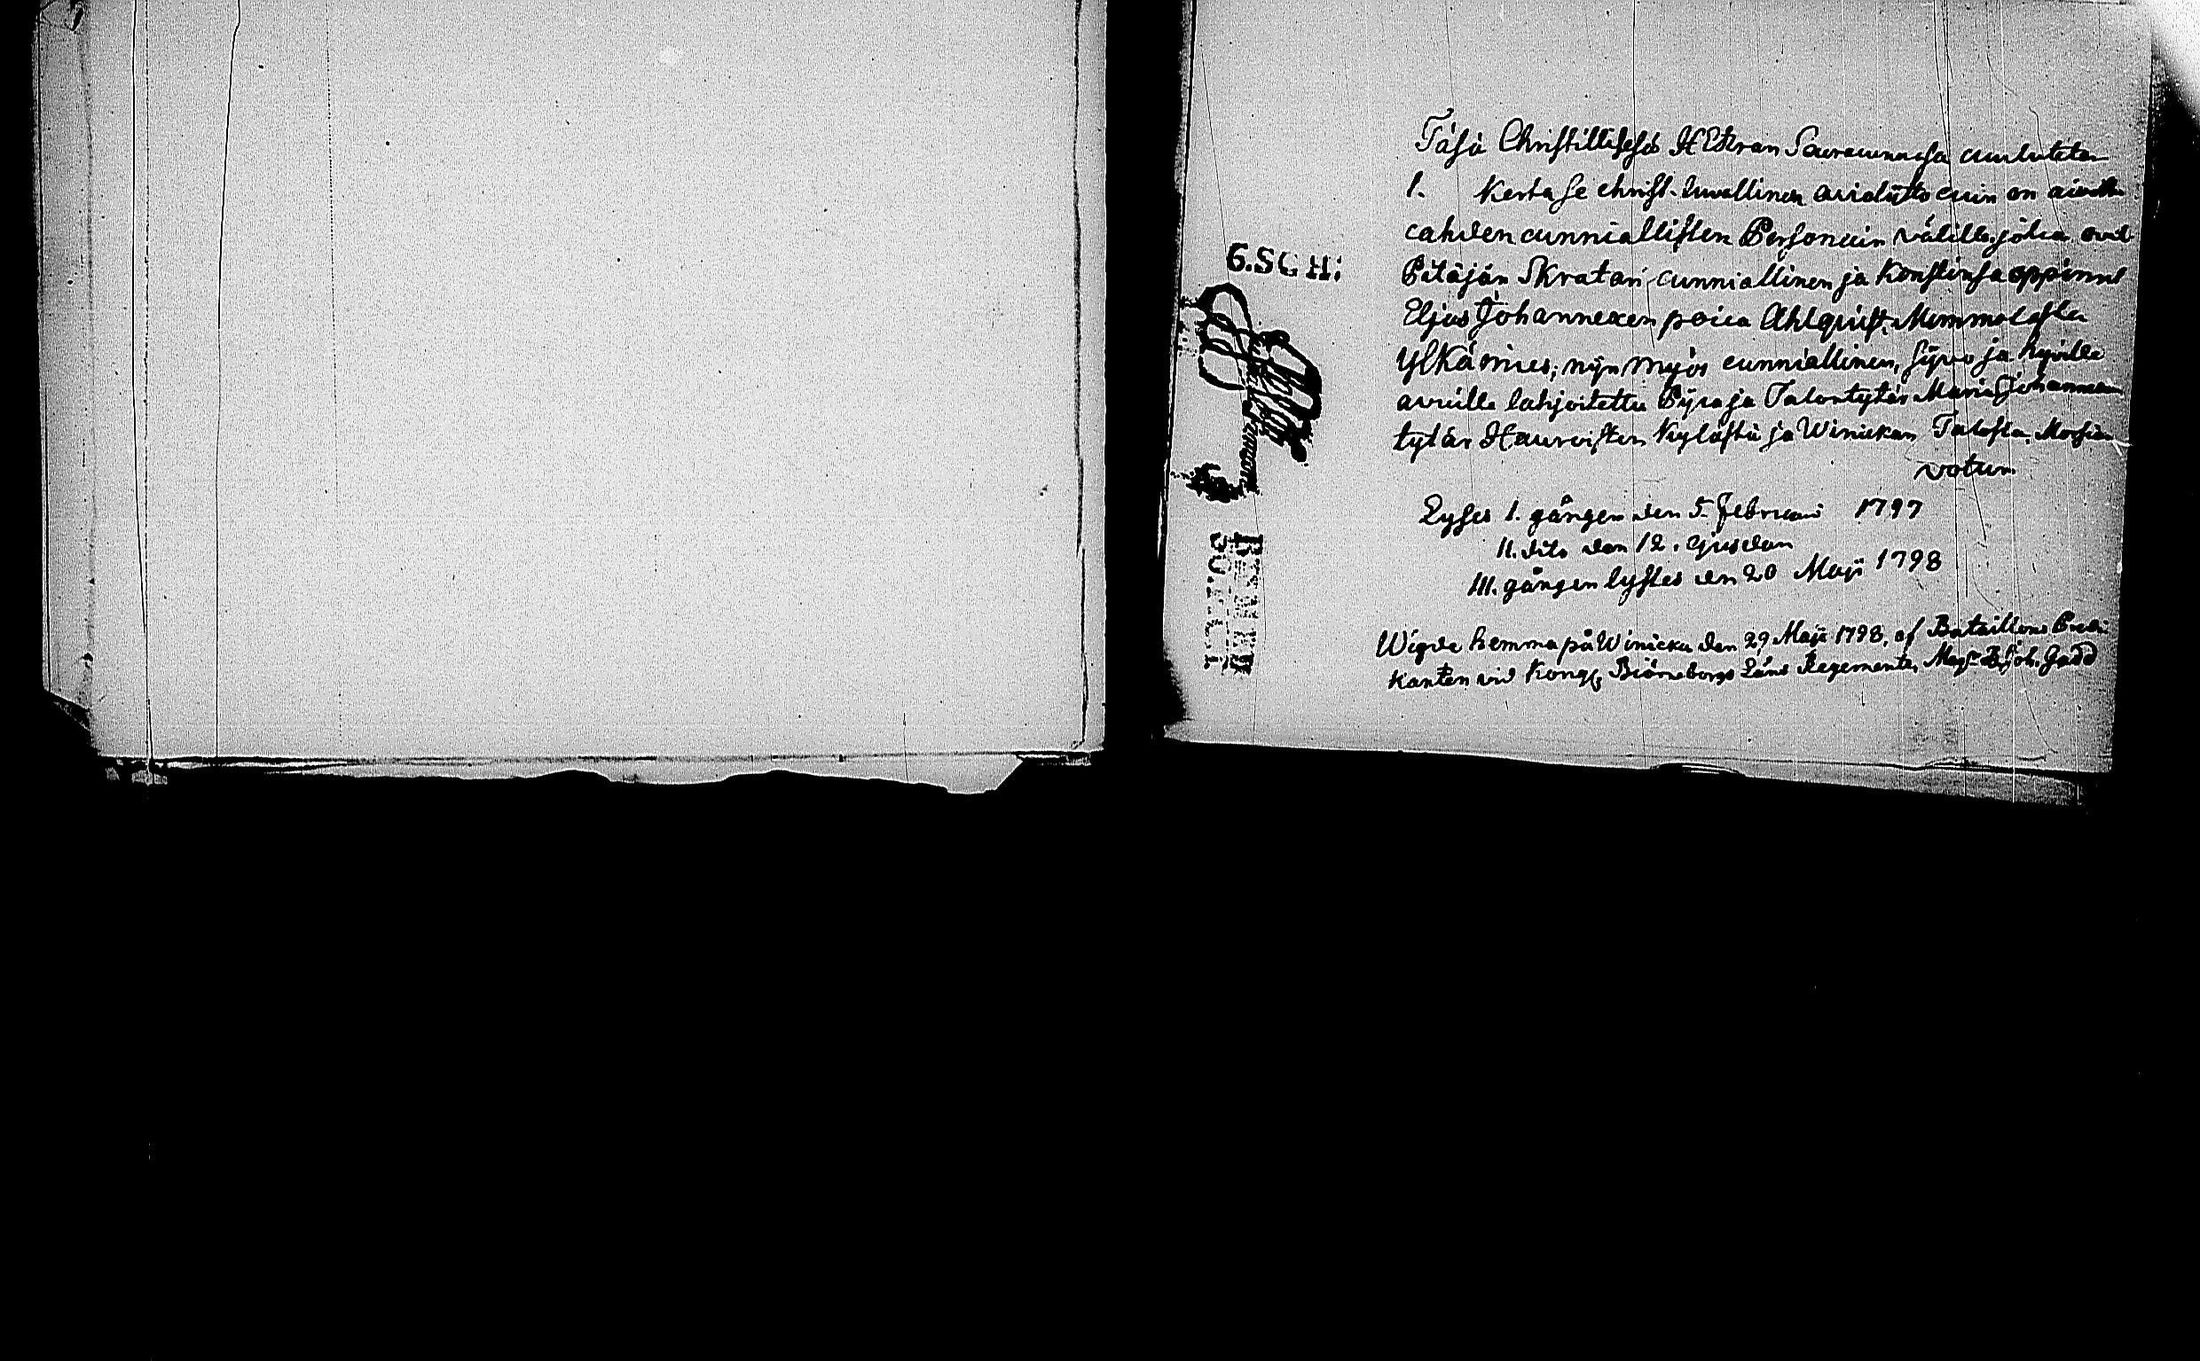 Täsä Christillisesä HERran Seuracunnasa cuulutetan
1. Kerta se christ. luvallinen aviokäsky cuin on aivottu
cahden cunniallisten Personain välille, jotca ovat
Pitäjän Skratari cunniallinen ja Konstinsa oppinut
Eljas Johannexen poica Ahlquist, Mommolasta
Ylkä mies; nijn myös cunniallinen, sijvo ja hyvillä
avuilla lahjoitettu Pijca ja Talontytär Maria Johannexen
tytär Haurvisten Kyläsä ja Winickan Talosta Morsian
votum
Lyses 1. gången den 5. Februarii 1797
II. dito den 12. ejusdem
III. gången lystes den 20 Maji 1798
G.SCH:
Wigde hemma på Winicka den 29 Maji 1798, af Bataillons Predi-
kanten vid Kongl. Biörneborgs Läns Regemente, Mag:r Joh. Gadd